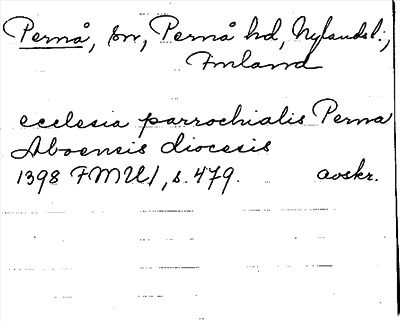 Pernå, sn, Pernå hd, Nylands l:,
Finland
ecclesia parrochialis Perna
Aboensis diocesis
1398 FMU I, s. 479. avskr.